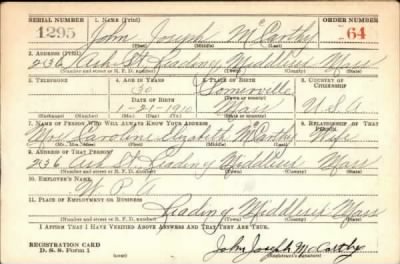 SERIAL NUMBER 1. NAME (Print) ORDER NUMBER
1295 John Joseph McCarthy 64
(First) (Middle) (Last)
2. ADDRESS (Print)
236 Ash St. Reading Middlesex Mass
(Number and street or R. F. D. number) (Town) (County) (State)
3. TELEPHONE 4. AGE IN YEARS 5. PLACE OF BIRTH 6. COUNTRY OF CITIZENSHIP
30 Somerville
DATE OF BIRTH (Town or county)
1-21-1910 Mass U.S.A
(Mo.) (Day) (Yr.) (State or country)
7. NAME OF PERSON WHO WILL ALWAYS KNOW YOUR ADDRESS 8. RELATIONSHIP OF THAT PERSON
Mrs Caroline Elizabeth McCarthy Wife
(Mr., Mrs., Miss) (First) (Middle) (Last)
9. ADDRESS OF THAT PERSON
236 Ash St. Reading Middlesex Mass
(Number and street or R. F. D. number) (Town) (County) (State)
10. EMPLOYER'S NAME
W. P.
11. PLACE OF EMPLOYMENT OR BUSINESS
Reading Middlesex Mass
(Number and street or R. F. D. number) (Town) (County) (State)
I AFFIRM THAT I HAVE VERIFIED ABOVE ANSWERS AND THAT THEY ARE TRUE.
REGISTRATION CARD
D. S. S. Form 1 John Joseph McCarthy
(Registrant's signature)